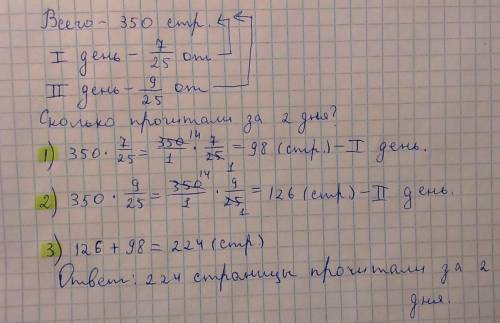 Всего - 350 стр.
I день - 7/25 от
II день - 9/25 от
Сколько прочитали за 2 дня?
1) 350 · 7/25 = 350 14/1 · 7/25 1 = 98 (стр.) - I день.
2) 350 · 9/25 = 350 14/1 · 9/25 1 = 126 (стр.) - II день.
3) 126 + 98 = 224 (стр)
Ответ: 224 страницы прочитали за 2
дня.